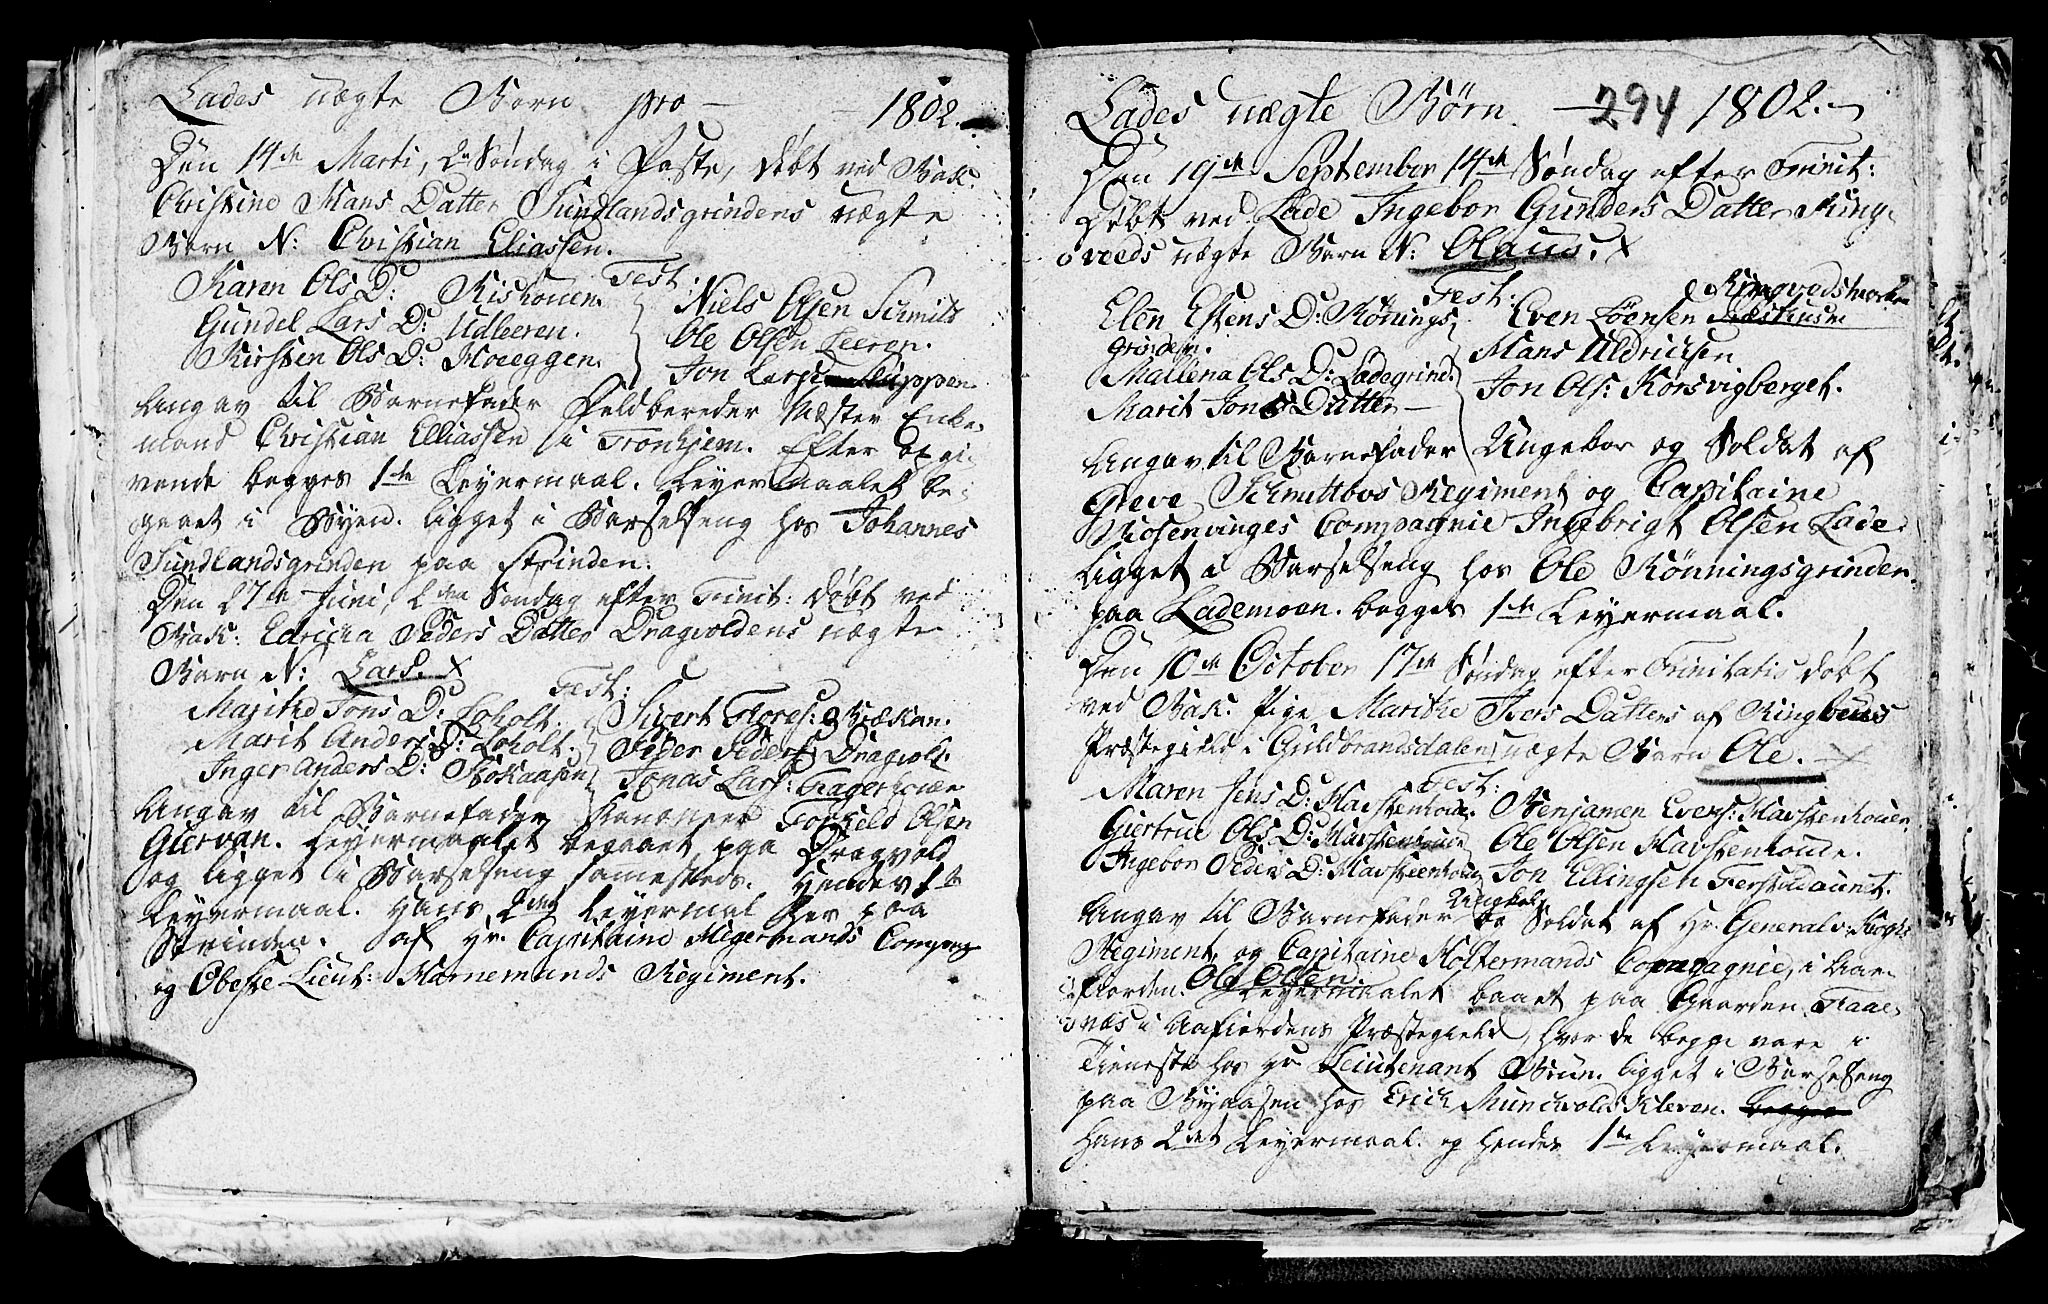 Lades uægte Børn pro — 1802.
Den 14de Marti, 2n Søndag i Faste, døbt ved Bak:
Christine Hans Datter Sundlandsgrindens uægte
Barn N: Christian Eliassen.
Test:
Karen Ols D: Riskouen.
Gundel Lars D: Udleeren.
Kirsten Ols D: Hoeggen.
Niels Olsen Schmits
Ole Olsen Leeren.
Jon Larsen
Angav til Barnefader Feldbereder Mæster Enke-
mand Christian Elliassen i Tronhjem. Efter opgi-
vende begges 1te Leyermaal. Leyermaalet be-
gaaet i Byen. ligget i Barselseng hos Johannes
Sundlandsgrinden paa Strinden.
Den 27de Juni, 2den Søndag efter Trinit: døbt ved
Bak: Edricka Peders Datter Dragvoldens uægte
Barn N: Lars. x
Test:
Majthe Jons D: Loholt.
Marit Anders D: Loholt.
Inger Anders D: Stokaasen
Sivert Thores: Brækan.
Peder Peders: Dragvold.
Jonas Lars:
Angav til Barnefader Kanoneer Torkeld Olsen
Giervan. Leyermaalet begaaet paa Dragvold
og ligget i Barselseng samesteds. Hendes 1te
Leyermaal. Hans 2det Leyermaal her paa
Strinden. af Hr. Capitaine Megermands Compag:
og Obeste Lieut: Mannemands Regiment.
Lades uægte Børn — 294 1802. —
Den 19de September 14de Søndag efter Trinit:
Døbt ved Lade Ingebor Gunders Datter Ring-
veeds uægte Barn N: Olaus. x
Test:
Elen Estens D: Rönings
grinden.
Mallena Ols D: Ladegrind.
Marit Jons Datter —
Ringvedsmarken
Even Löensen
Hans Uldricksen
Jon Ols: Korsvigberget.
Angav til Barnefader Ungekar og Soldat af
Greve Schmittous Regiment og Capitaine
Rosenvinges Compagnie Ingebrigt Olsen Lade
ligget i Barselseng hos Ole Rönningsgrinden
paa Lademoen. begges 1te Leyermaal.
Den 10de October 17de Søndag efter Trinitatis døbt
ved Bak: Pige Marithe Ivers Datters af Ringboes
Præstegield i Guldbrandsdalen, uægte Barn Ole. x
Test:
Maren Jens D: Havstenhoude.
Giertrue Ols D: Havstenhoude
Ingebor Peders D: Havsteenhoue
Benjamen Evens: Havstenhouen.
Ole Olsen Havstenhoude.
Jon Ellingsen Ferstadaunet.
Angav til Barnefader Ungkarl og Soldat af Hr. General v: Krogs
Regiment, og Capitaine Holtermands Compagnie, i Aae-
fiorden. Ole Olsen. Leyermaalet baaet paa Gaarden Traae-
næs i Aafiordens Præstegield, hvor de begge vare i
Tieneste hos Hr. Leiutenant Brun. ligget i Barselseng
paa Byaasen hos Erich Munckvolds Kleven.
hans 2det Leyermaal. og hendes 1te Leyermaal.